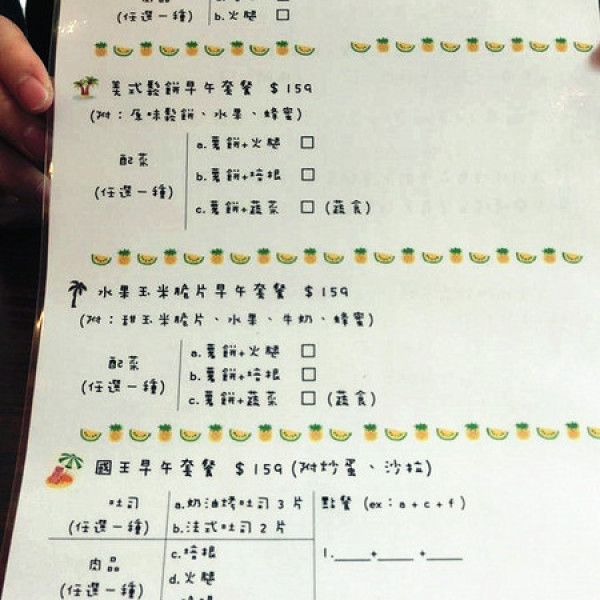 (任選一種) b.火腿 □
美式鬆餅早午套餐 $159
(附：原味鬆餅、水果、蜂蜜)
a.薯餅+火腿 □
配菜
b.薯餅+培根 □
(任選一種)
c.薯餅+蔬菜 □ (蔬食)
水果玉米脆片早午套餐 $159
(附：甜玉米脆片、水果、牛奶、蜂蜜)
a.薯餅+火腿 □
配菜
b.薯餅+培根 □
(任選一種)
c.薯餅+蔬菜 □ (蔬食)
國王早午套餐 $159 (附炒蛋、沙拉)
吐司 a.奶油烤吐司 3 片 點餐 (ex：a+c+f)
(任選一種) b.法式吐司 2 片
c.培根 1.____+____ +____
肉品
d.火腿
(任選一種)